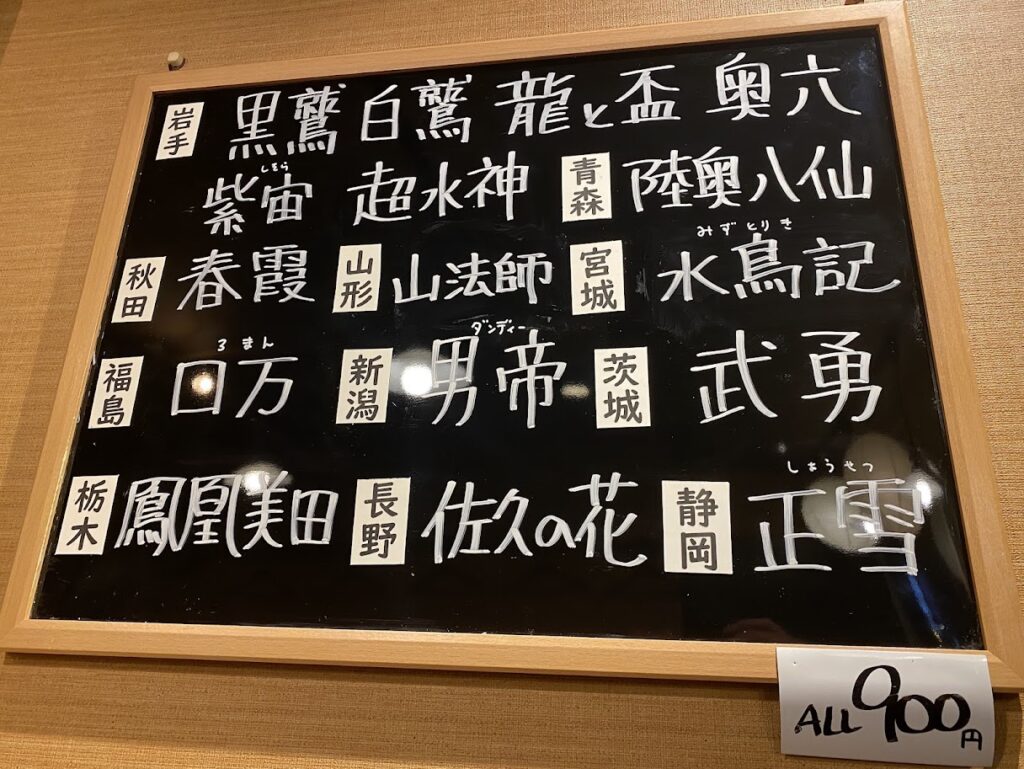 岩手 黒鷲 白鷲 龍と盃 奥六
しそら
紫宙 超水神 青森 陸奥八仙
みずとりき
秋田 春霞 山形 山法師 宮城 水鳥記
ろまん ダンディー
福島 口万 新潟 男帝 茨城 武勇
しょうせつ
栃木 鳳凰美田 長野 佐久の花 静岡 正雪
ALL 900円